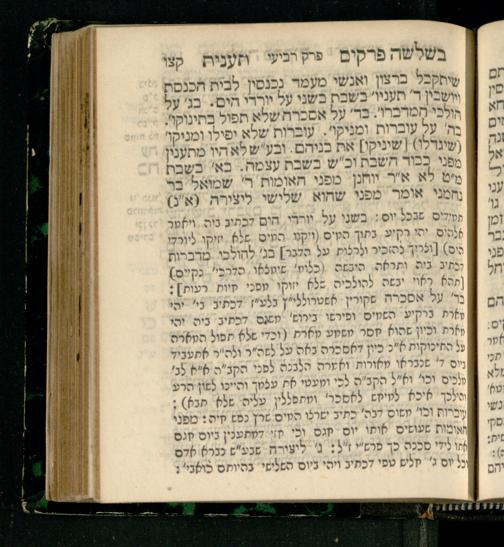 בשלשה פרקים פרק רביעי תענית קצו
שיתקבל ברצון ואנשי מעמד נכנסין לבית הכנסת
ויושבין ד' תעניו' בשבת בשני על יורדי הים. בג' על
הולכי המדברו'. בד' על אסכרה שלא תפול בתינוקו'.
בה' על עוברות ומניקו'. עוברות שלא יפילו ומניקו'
(שיגדלו) [שיניקו] את בניהם ובע"ש לא היו מתענין
מפני כבוד השבת וכ"ש בשבת עצמה. בא' בשבת
מ"ט לא א"ר יוחנן מפני האומות ר' שמואל בר
נחמני אומר מפני שהוא שלישי ליצירה (א"נ)
תמידים שבכל יום: בשני על יורדי הים דכתיב ביה ויאמר
אלהים יהי רקיע בתוך המים (ויקוו המים שלא יזיקו ליורדי
הים) [וצריך להזכיר ולרצות על הדבר] בג' להולכי מדברות
דכתיב ביה ותראה היבשה
[תהא ראוי יבשה להולכיה שלא יזוקו מפני חיות רעות]:
בד' על אסכרה שקורין דכתיב בי' יהי
מארת ברקיע השמים ופירשו בירוש' משום דכתיב ביה יהי
מארת וכיון שהוא חסר משמע מארת (וכדי שלא תפול המארה
על התינוקות א"נ כיון דאסכרה באה על לשה"ר
ביום ד' שנבראו מאורות ואמרה הלבנה לפני הקב"ה א"א לב'
מלכים וכו' וא"ל הקב"ה לכי ומעטי את עצמך והיינו לשון הרע
והילכך איכא למיחש לאסכר' ומתפללין עליה שלא תבא):
עוברות וכו' משום דבה' כתיב ישרצו המים שרץ נפש חיה: מפני
האומות שעושים אותו יום חגם וכי חזי דמתענין ביום חגם
אתו לידי סכנה כך פרש"י ז"ל: ג' ליצירה שבע"ש נברא אדם
וכל יום ג' חלש טפי דכתיב ויהי ביום השלישי בהיותם כואבי':